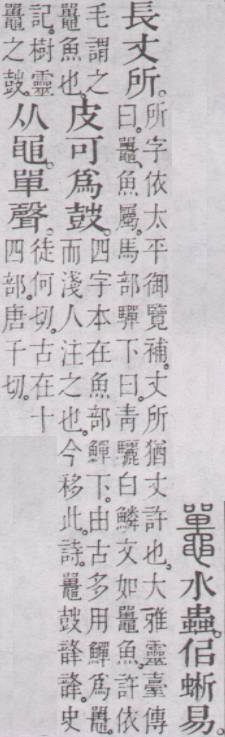 鼉水蟲。佀蜥易。
長丈所。
所字依太平御覽補。丈所猶丈許也。大雅靈臺傳
曰。鼉、魚屬。馬部驒下曰。青驪白鱗文如鼉魚。許依
毛謂之
鼉魚也。
皮可爲鼓。
四字本在魚部鱓下。由古多用鱓爲鼉。
而淺人注之也。今移此。詩。鼉鼓韸韸。史
記。樹靈
鼉之鼓。
从黽。單聲。
徒何切。古在十
四部。唐千切。